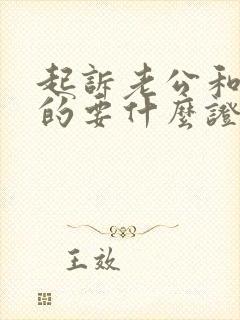 起訴老公和
的要什麼證
王效